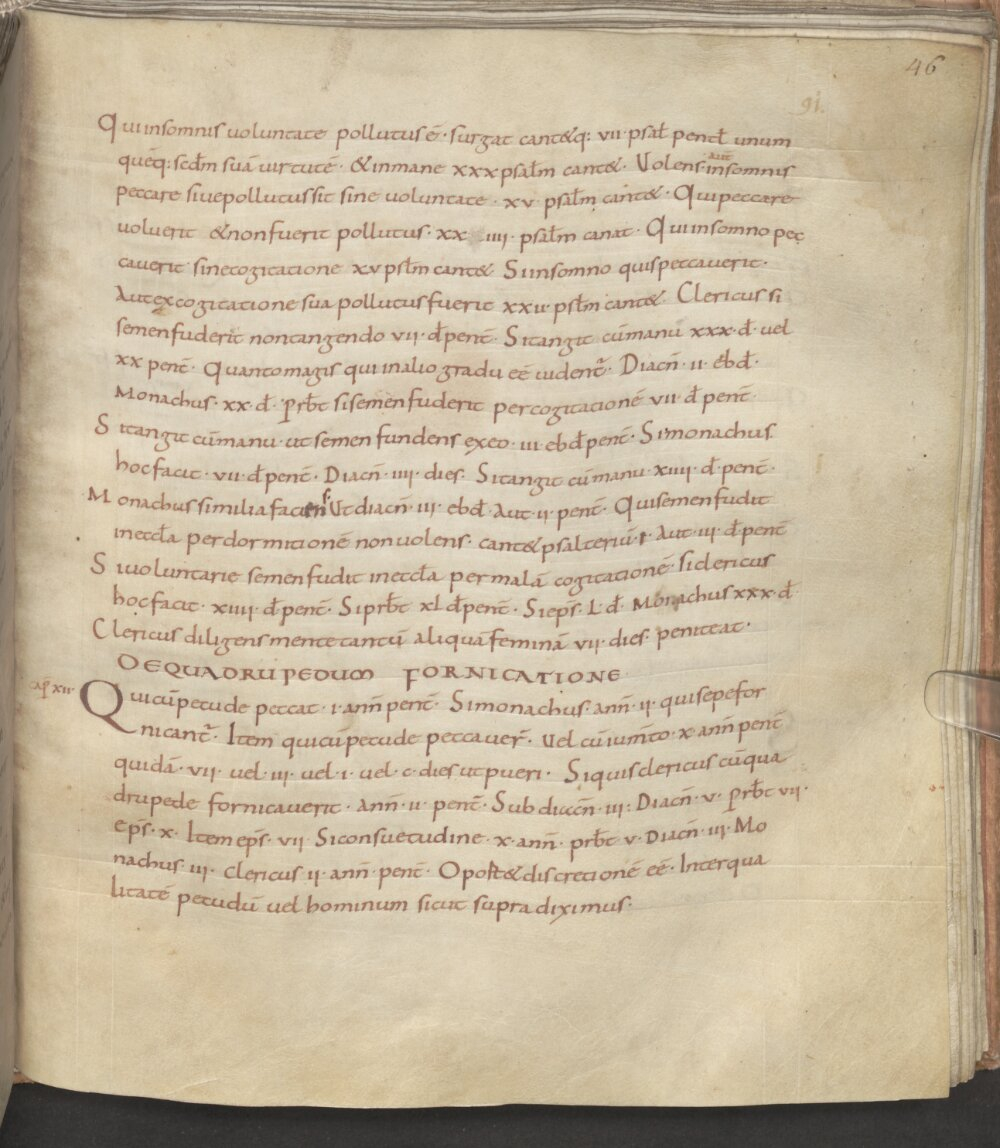 46
91.
Qui in somnis voluntate pollutus ē· surgat cant&q: vii· psal̄ pend̄ unum
quēq: scd̄m suā virtutē· & in mane xxx psal̄m cant&· Volens aut in somnis
peccare sive pollutus sit sine voluntate· xv· psal̄m cant&· Qui peccare
voluerit & non fuerit pollutus· xx iiii· psal̄m canat· Qui in somno pec
caverit sine cogitatione xv psl̄m cant& Si in somno quis peccaverit·
Aut ex cogitatione sua pollutus fuerit xxii psl̄m cant& Clericus si
semen fuderit non tangendo vii· d̄ penī· Si tangit cū manu xxx· d̄· vel
xx penī· Quanto magis qui in alio gradu eē videnī· Diacn̄· ii· ebd̄·
Monachus· xx· d̄· Prbt̄ si semen fuderit per cogitationē vii· d̄ penī·
Si tangit cū manu· ut semen fundens exeo· iii· ebd̄ penī· Si monachus
hoc facit· vii· d̄ penī· Diacn̄· iiii· dies· Si tangit cū manu· xiiii· d̄ penī·
Monachus similia faciens Ut diacn̄· iii· ebd̄· Aut· ii· penī· Qui semen fudit
in eccl̄a per dormitionē non volens· cant& psalteriū· Aut· iii· d̄ penī
Si voluntarie semen fudit in eccl̄a per malā cogitationē· si clericus
hoc facit· xiiii· d̄ penī· Si prbt̄ xl d̄ penī· Si ep̄s· L· d̄· Monachus xxx· d̄·
Clericus diligens mente tantū aliquā feminā vii· dies· peniteat·
DE QUADRUPEDUM FORNICATIONE
cap̄ xii
Qui cū pecude peccat· i· ann̄ penī· Si monachus· ann̄· ii· qui sepe for
nicanī· Item qui cū pecude peccaver̄· Vel cū iumīto· x· ann̄ penī
quidā· vii· vel· iii· vel· i· vel· c· dies ut pueri· Si quis clericus cū qua
drupede fornicaverit· ann̄· ii· penī· Subdiacn̄· iii: Diacn̄· v· Prbt̄ vii·
ep̄s· x· Item ep̄s· vii· Si consuetudine· x· ann̄· prbt̄ v· Diacn̄· iii· Mo
nachus· iii· clericus ii· ann̄· penī· Oport& discretionē eē· Inter qua
litatē pecudū vel hominum sicut supra diximus·